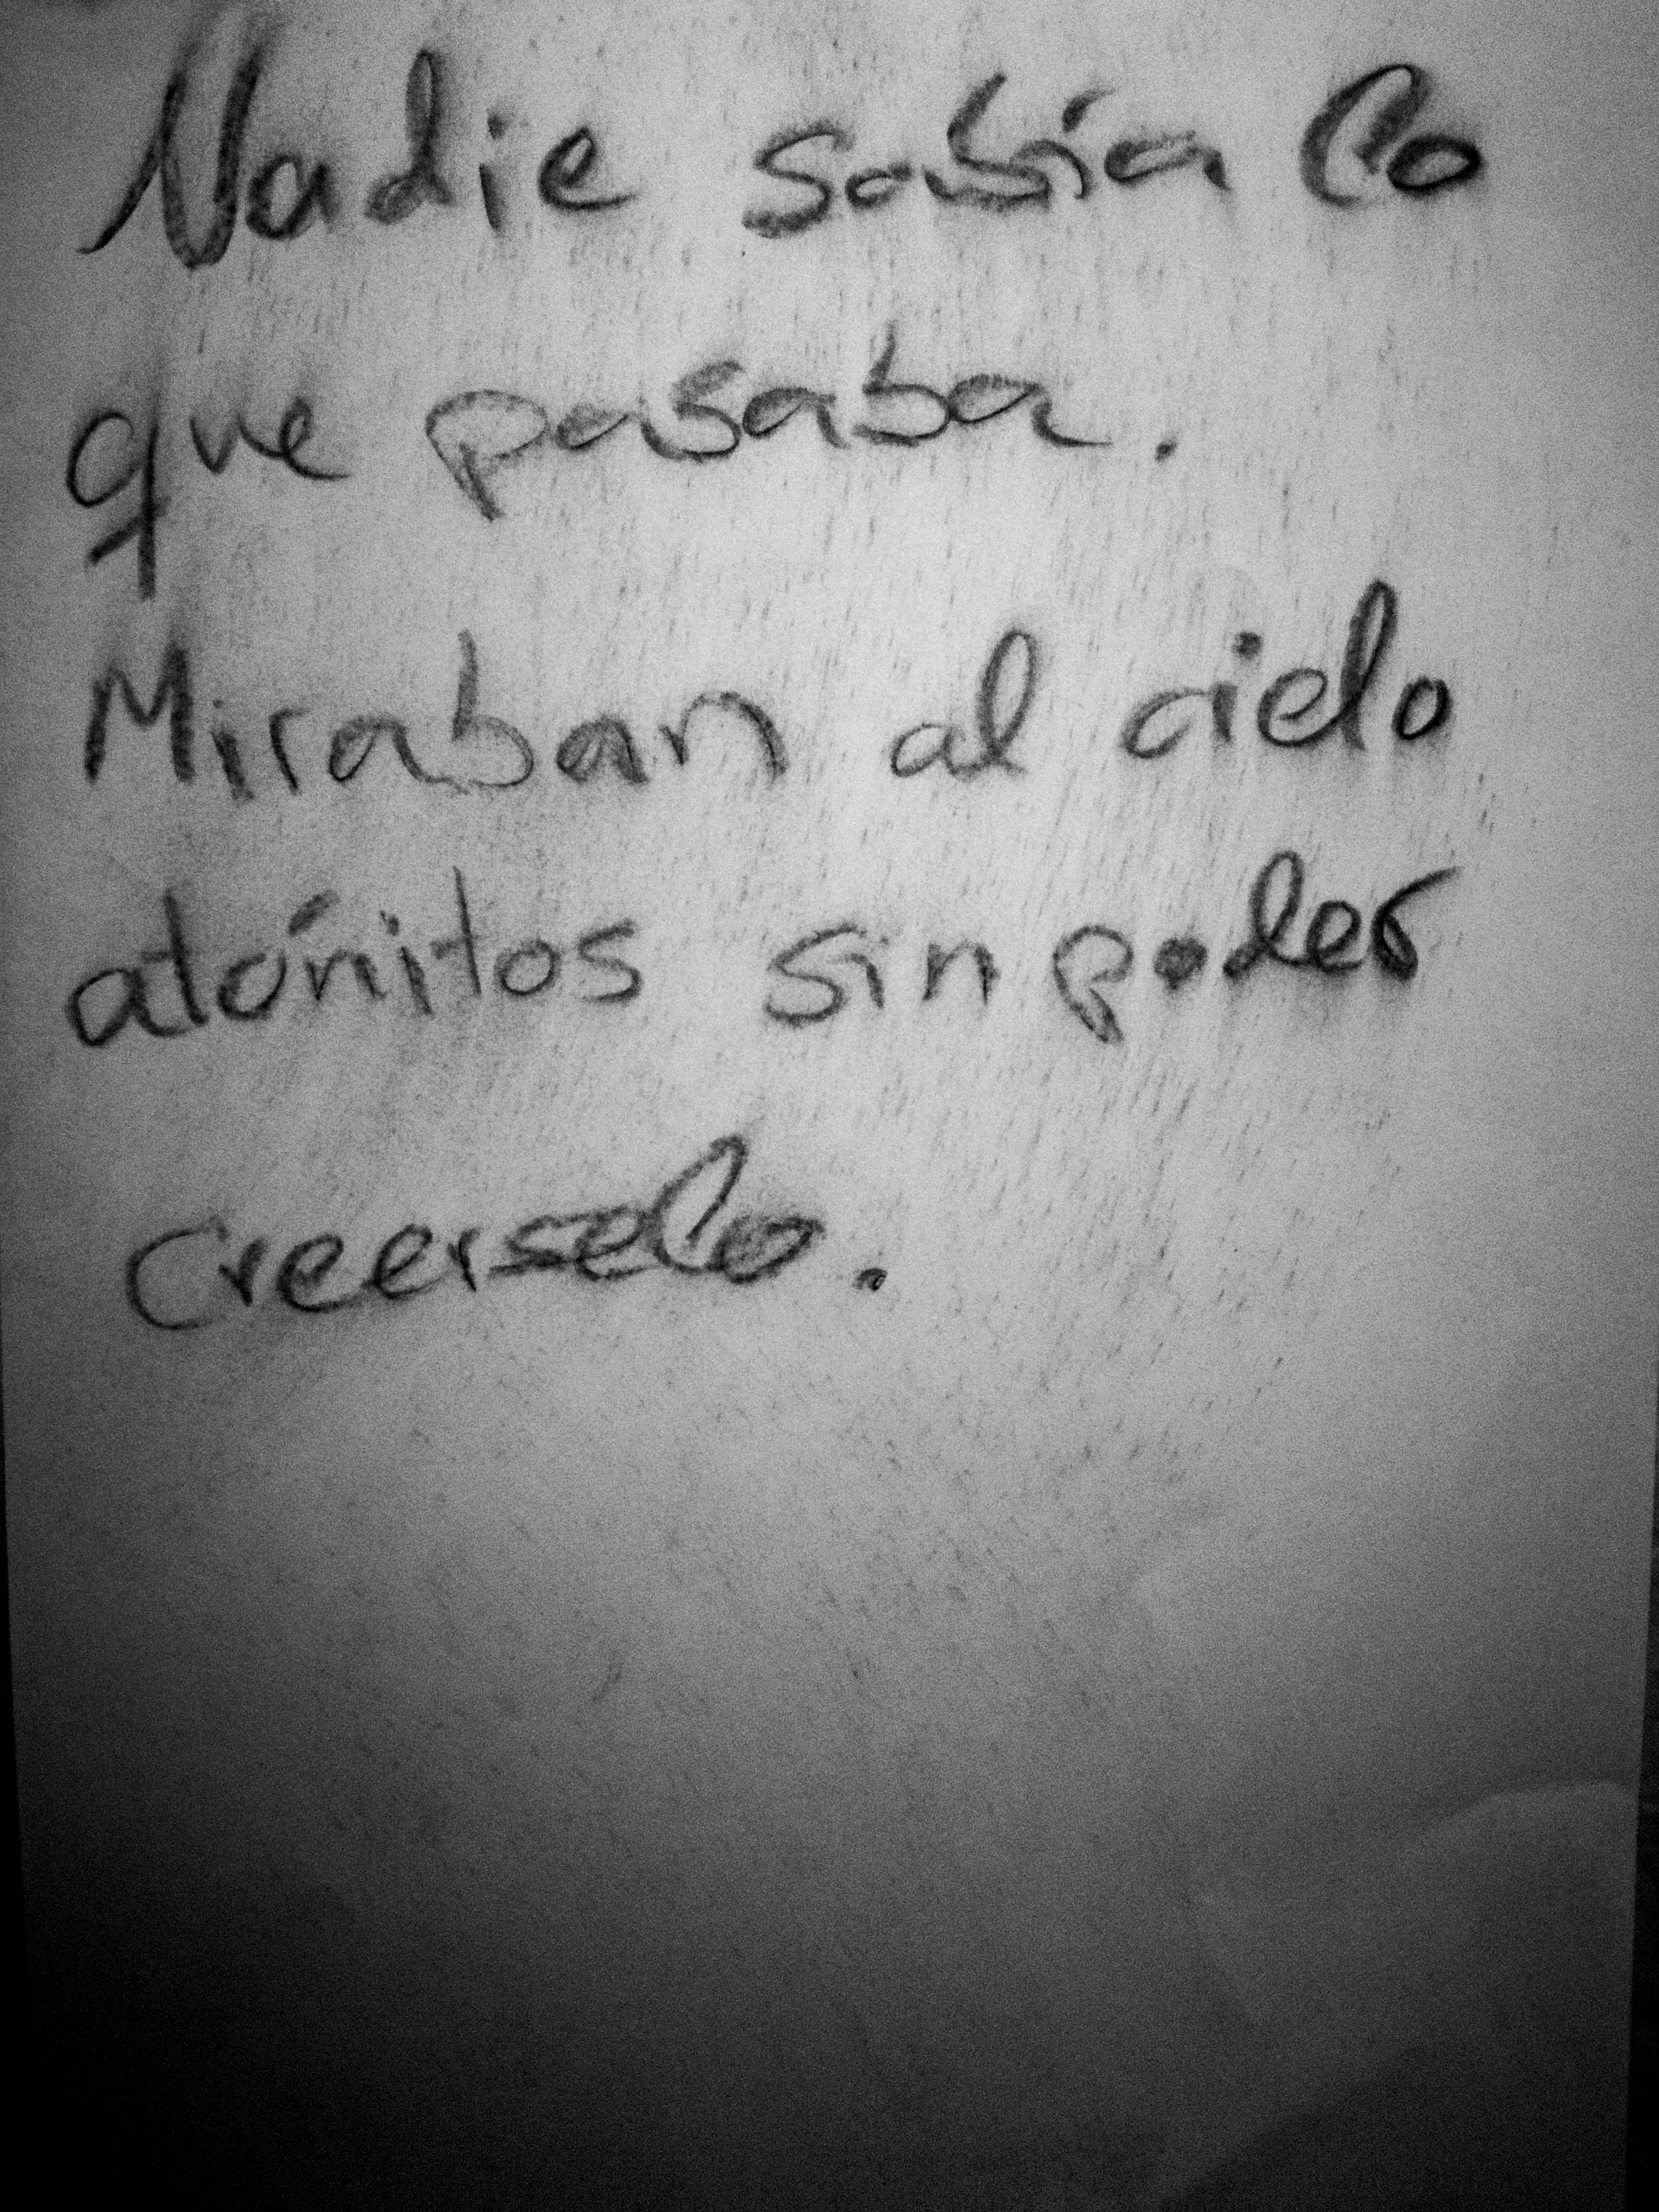 Nadie sabía lo
que pasaba.
Miraban al cielo
atónitos sin poder
creerselo.